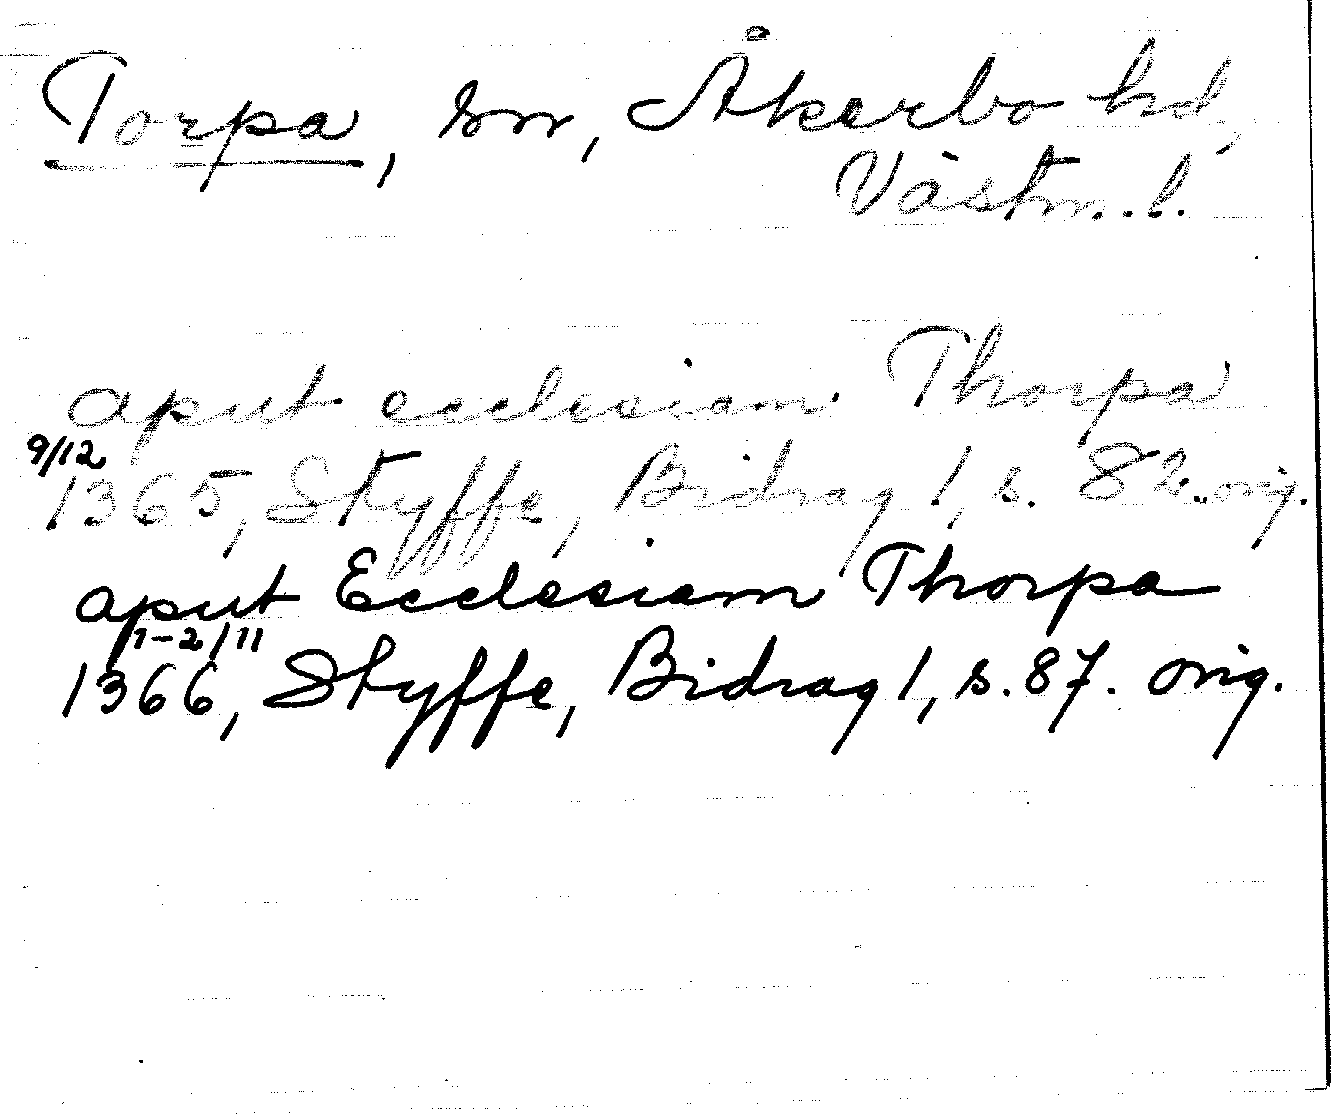 Torpa, sn, Åkerbo hd,
Västm. l.
aput ecclesiam Thorpa
9/12
1365, Styffe, Bidrag 1, s. 82. orig.
aput Ecclesiam Thorpa
1-2/11
1366, Styffe, Bidrag 1, s. 87. orig.